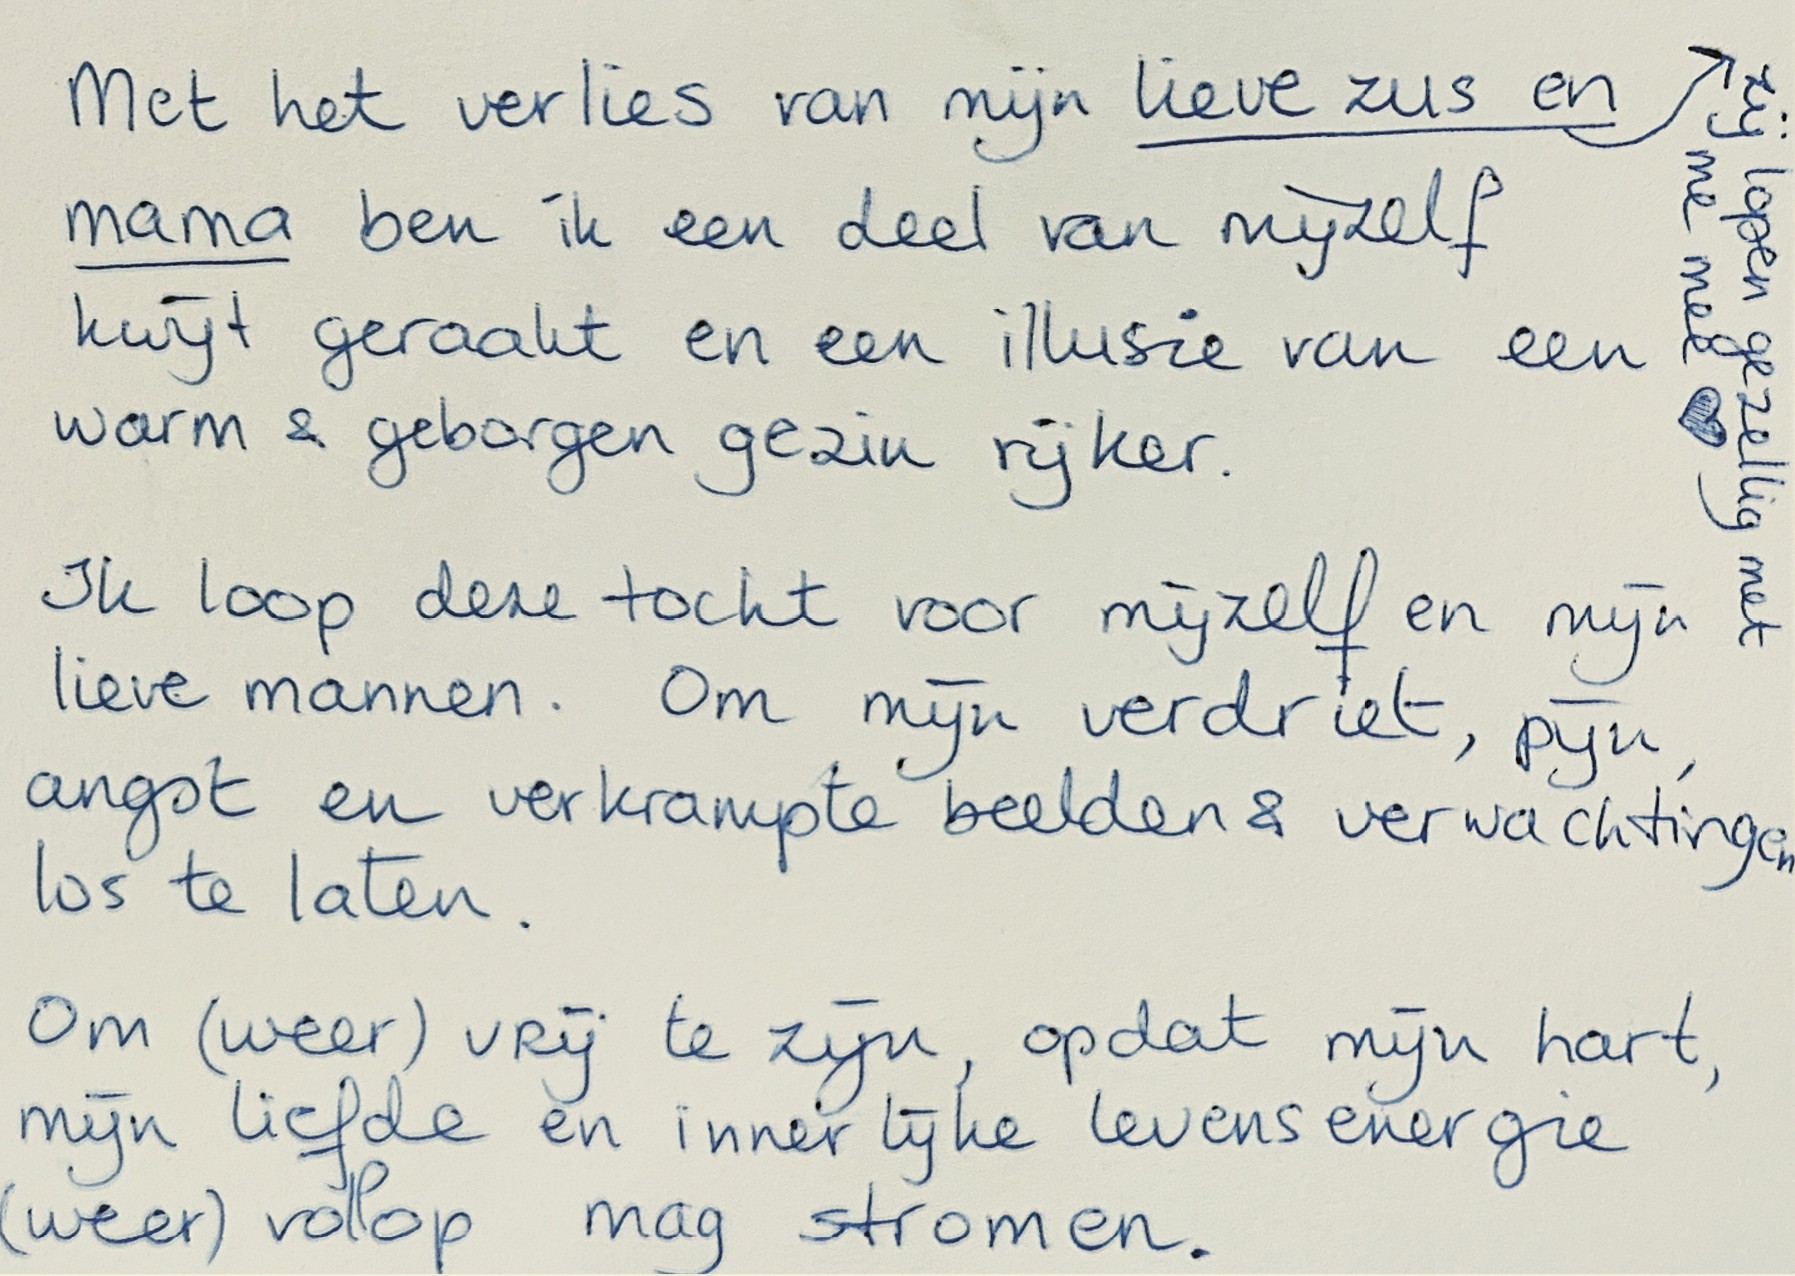 Met het verlies van mijn lieve zus en
mama ben ik een deel van mijzelf
kwijt geraakt en een illusie van een
warm & geborgen gezin rijker.
Ik loop deze tocht voor mijzelf en mijn
lieve mannen. Om mijn verdriet, pijn,
angst en verkrampte beelden & verwachtingen
los te laten.
Om (weer) vrij te zijn, opdat mijn hart,
mijn liefde en innerlijke levensenergie
(weer) volop mag stromen.
zij lopen gezellig met
me mee